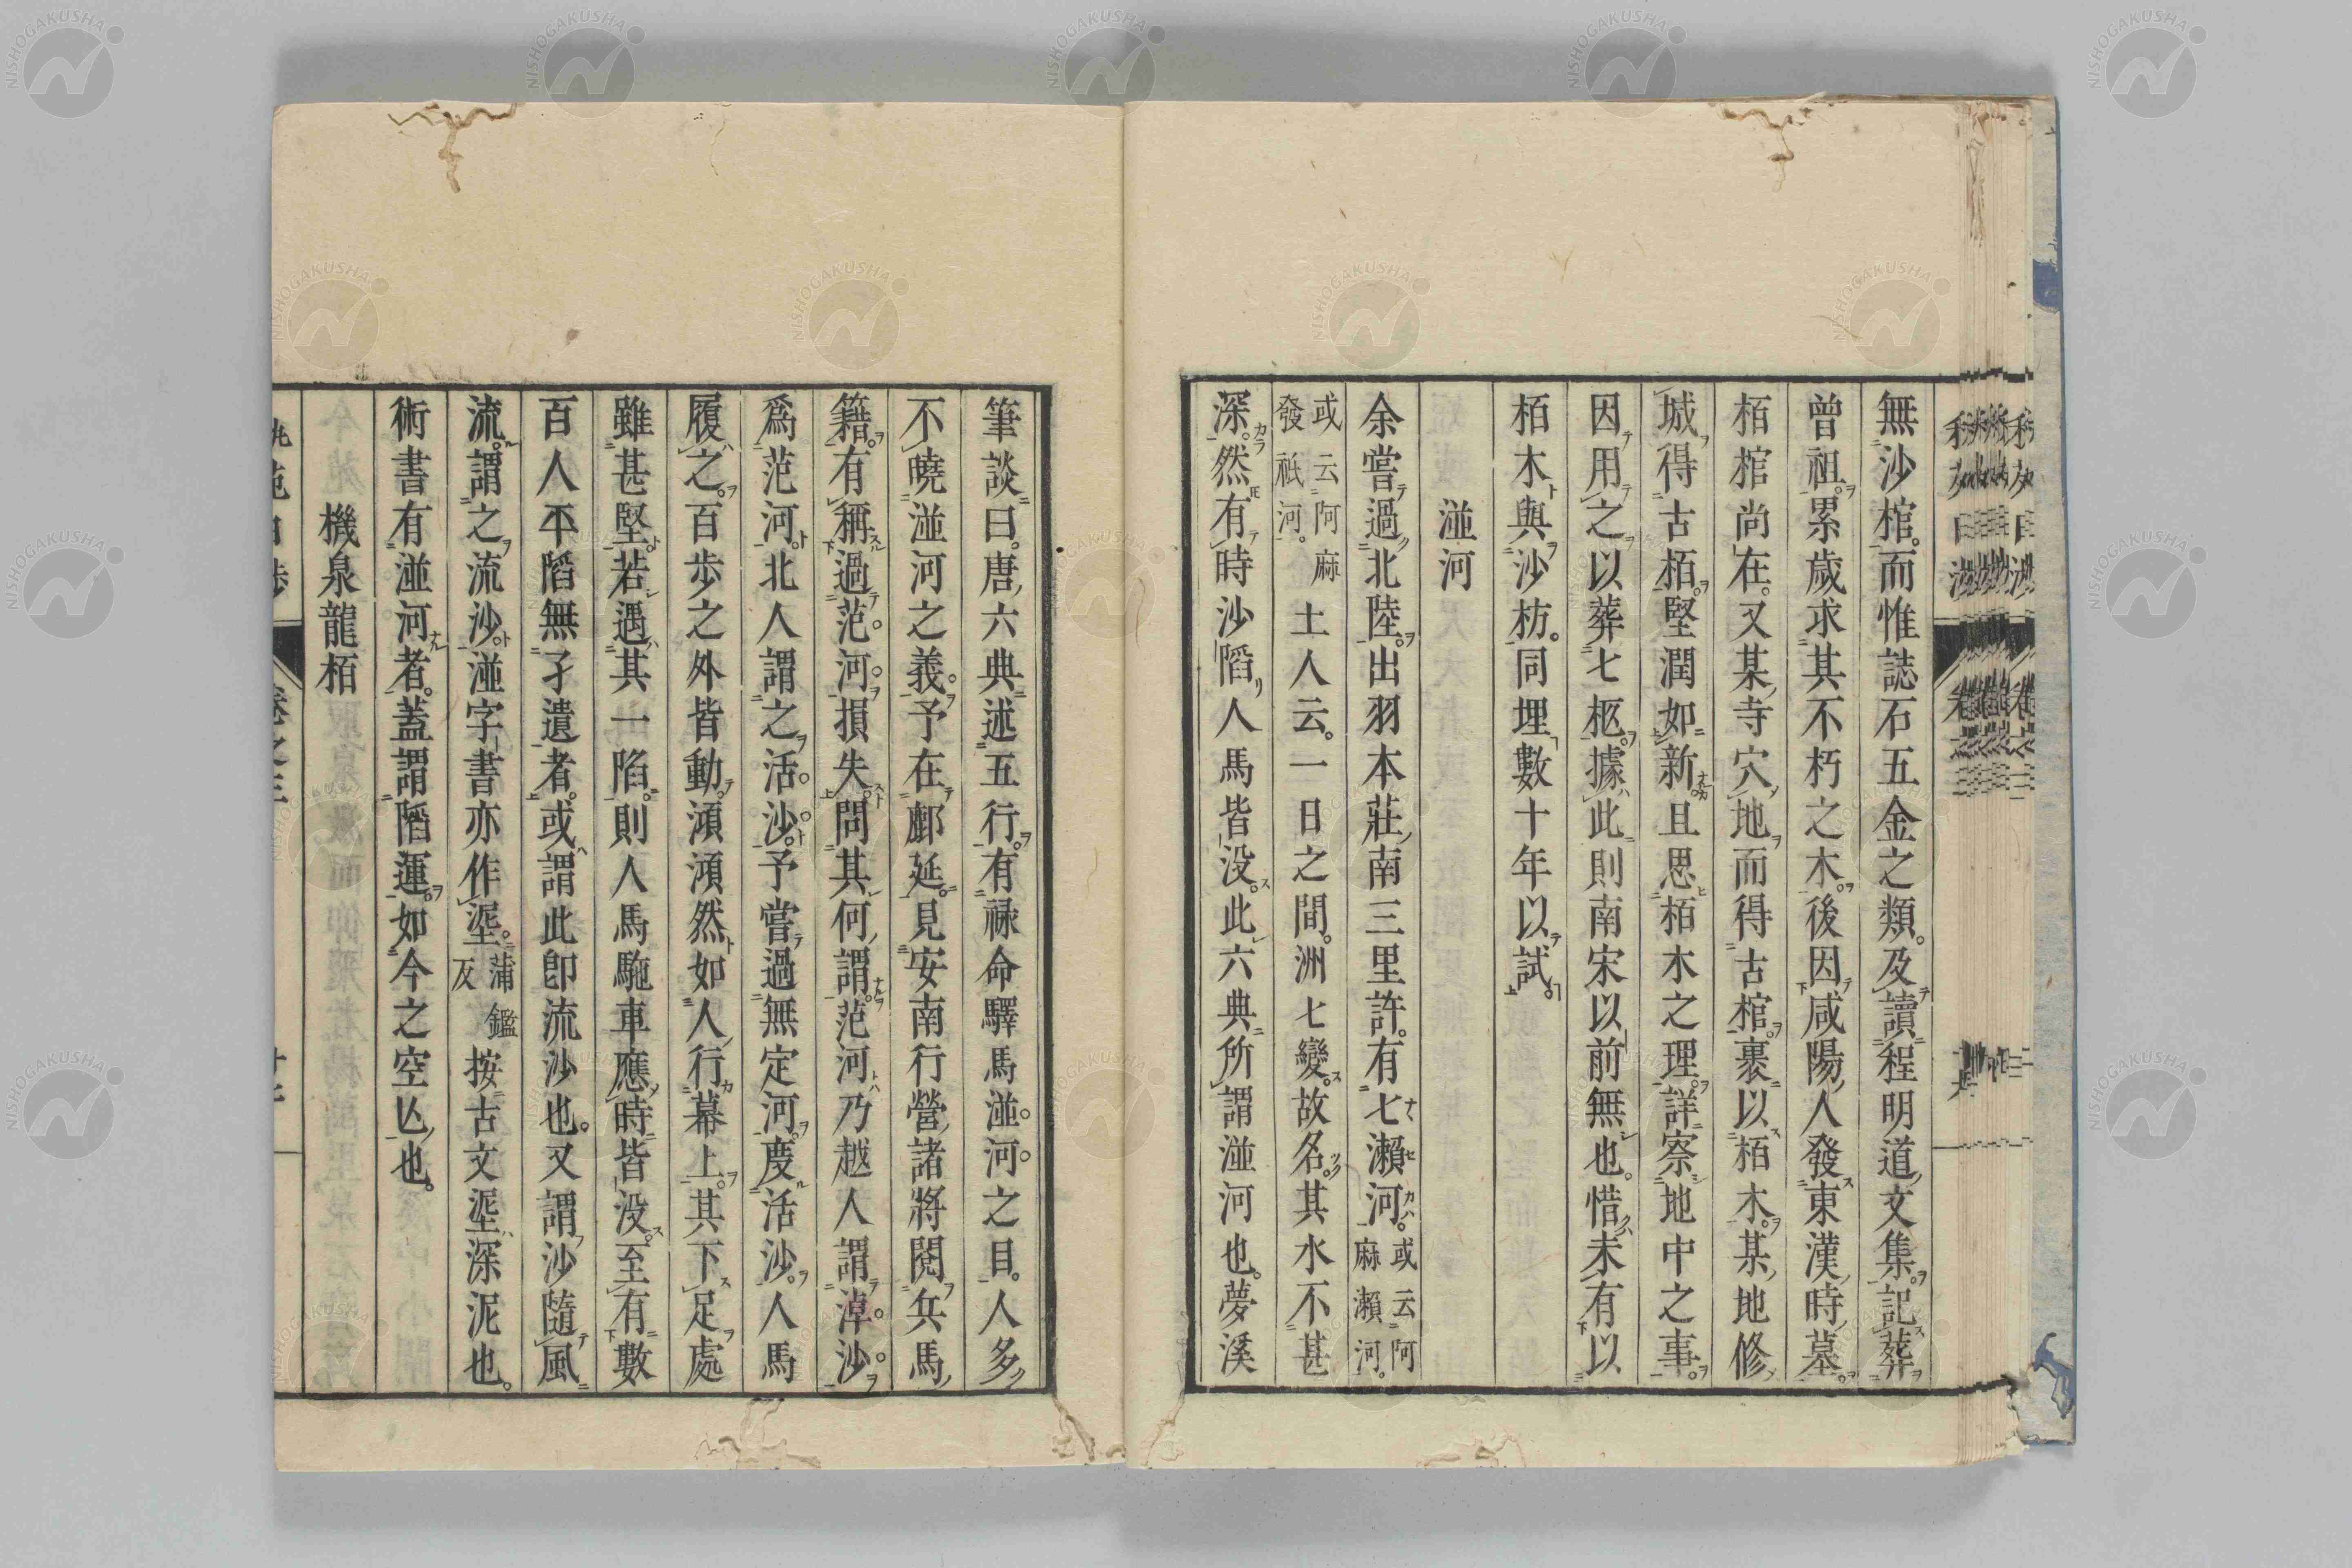 無沙棺。而惟誌石五金之類。及讀程明道文集。記葬
曾祖。累歲求其不朽之木。後因咸陽人發東漢時墓。
栢棺尚在。又某寺穴地而得古棺。裹以栢木。某地修
城得古栢。堅潤如新。且思栢木之理。詳察地中之事。
因用之以葬七柩。據此則南宋以前無也。惜未有以
栢木與沙枋。同埋數十年以試。
湴河
余嘗過北陸。出羽本莊南三里許。有七瀨河。或云阿麻瀨河。
或云阿麻發祇河。土人云。一日之間。洲七變。故名。其水不甚
深。然有時沙䧟人馬皆没。此六典所謂湴河也。夢溪
筆談曰。唐六典述五行。有祿命驛馬湴河之目。人多
不曉湴河之義。予在鄜延。見安南行營諸將閱兵馬
籍。有稱過范河損失。問其何謂。范河乃越人謂淖沙
爲范河。北人謂之活沙。予嘗過無定河。度活沙。人馬
履之。百歩之外皆動。澒澒然如人行幕上。其下足處
雖甚堅。若遇其一陷。則人馬駞車應時皆没。至有數
百人平䧟無孑遺者。或謂此卽流沙也。又謂沙隨風
流。謂之流沙。湴字書亦作埿。蒲鑑反 按古文埿深泥也。
術書有湴河者。蓋謂䧟運。如今之空亡也。
機泉龍栢
卷之三